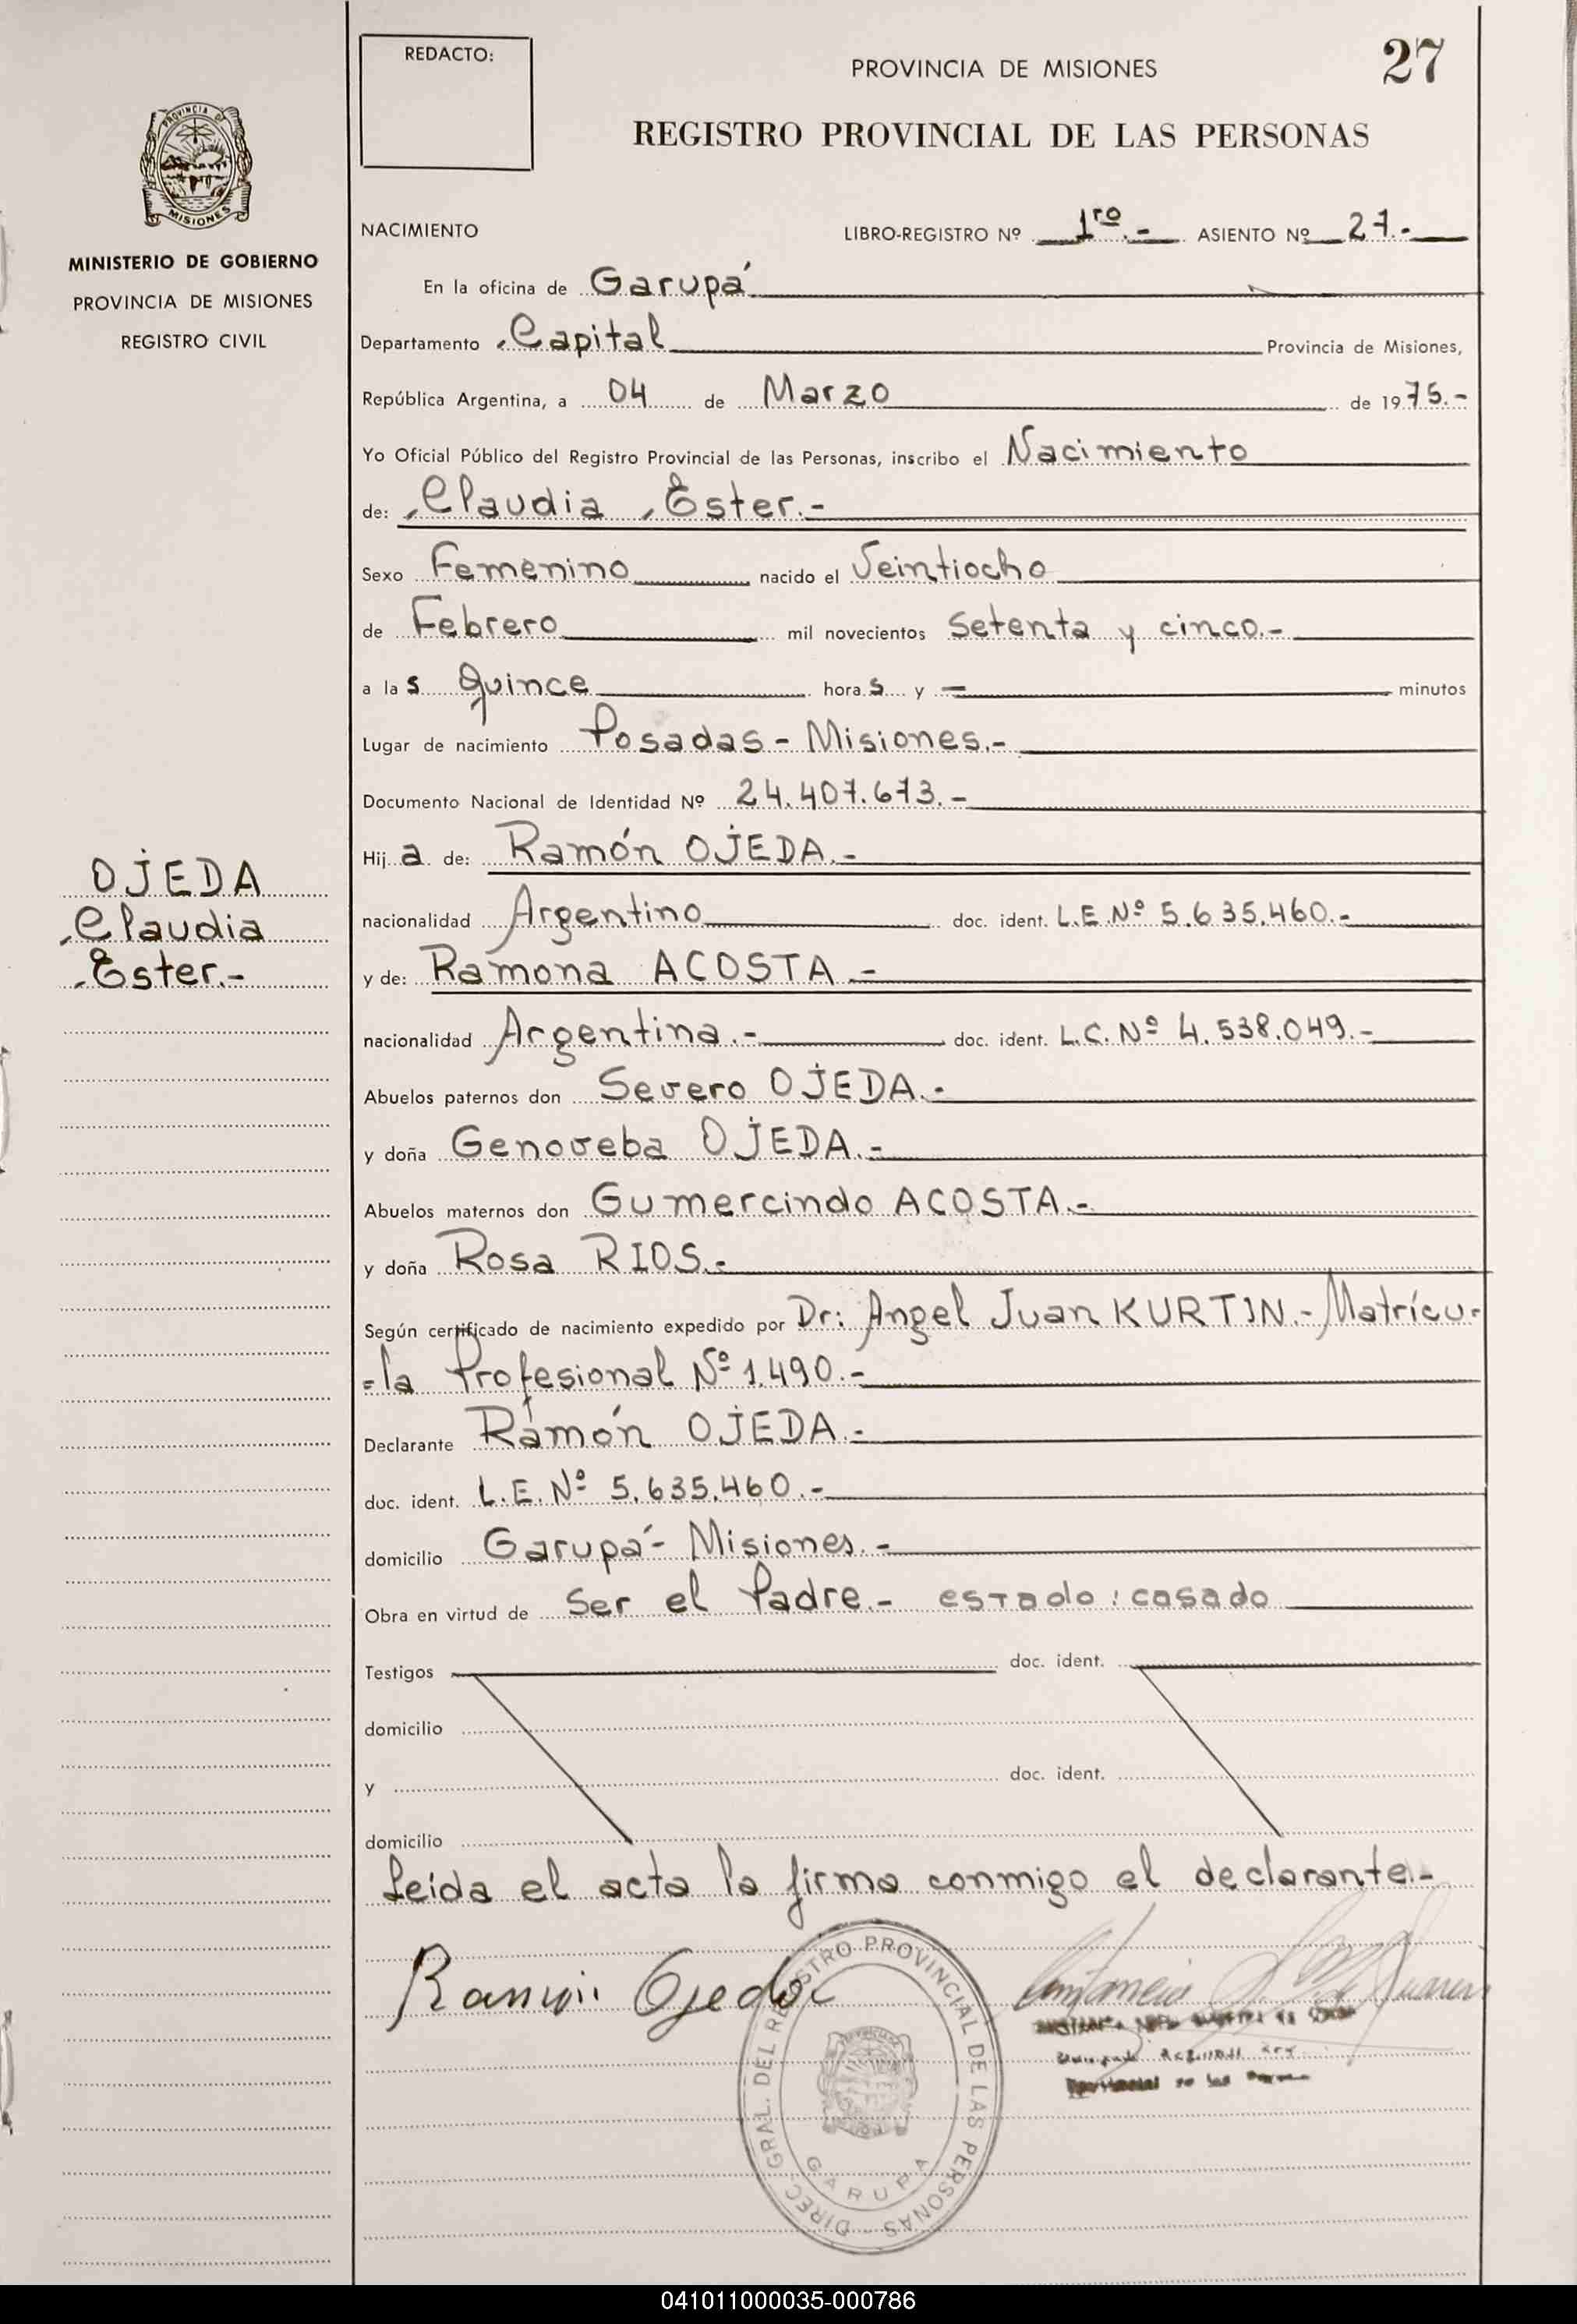 REDACTO:
PROVINCIA DE MISIONES
27
REGISTRO PROVINCIAL DE LAS PERSONAS
PROVINCIA DE
MISIONES
MINISTERIO DE GOBIERNO
PROVINCIA DE MISIONES
REGISTRO CIVIL
NACIMIENTO LIBRO-REGISTRO Nº 1ro.- ASIENTO Nº 27.-
En la oficina de Garupá
Departamento Capital Provincia de Misiones,
República Argentina, a 04 de Marzo de 1975.-
Yo Oficial Público del Registro Provincial de las Personas, inscribo el Nacimiento
de: Claudia Ester.-
Sexo Femenino nacido el Veintiocho
de Febrero mil novecientos setenta y cinco.-
a las Quince horas y = minutos
Lugar de nacimiento Posadas - Misiones.-
Documento Nacional de Identidad Nº 24.407.673.-
Hija de: Ramón OJEDA.-
OJEDA
Claudia
Ester.-
nacionalidad Argentino doc. ident. L.E.Nº 5.635.460.-
y de: Ramona ACOSTA.-
nacionalidad Argentina.- doc. ident. L.C.Nº 4.538.049.-
Abuelos paternos don Severo OJEDA.-
y doña Genoveba OJEDA.-
Abuelos maternos don Gumercindo ACOSTA.-
y doña Rosa RIOS.-
Según certificado de nacimiento expedido por Dr: Angel Juan KURTIN.- Matrícu-
=la Profesional Nº 1.490.-
Declarante Ramón OJEDA.-
doc. ident. L.E.Nº 5.635.460.-
domicilio Garupá - Misiones.-
Obra en virtud de Ser el Padre.- estado : casado
Testigos doc. ident.
domicilio
y doc. ident.
domicilio
Leida el acta la firma conmigo el declarante.-
Ramón Ojeda
DIREC. GRAL. DEL REGISTRO PROVINCIAL DE LAS PERSONAS
GARUPA
041011000035-000786